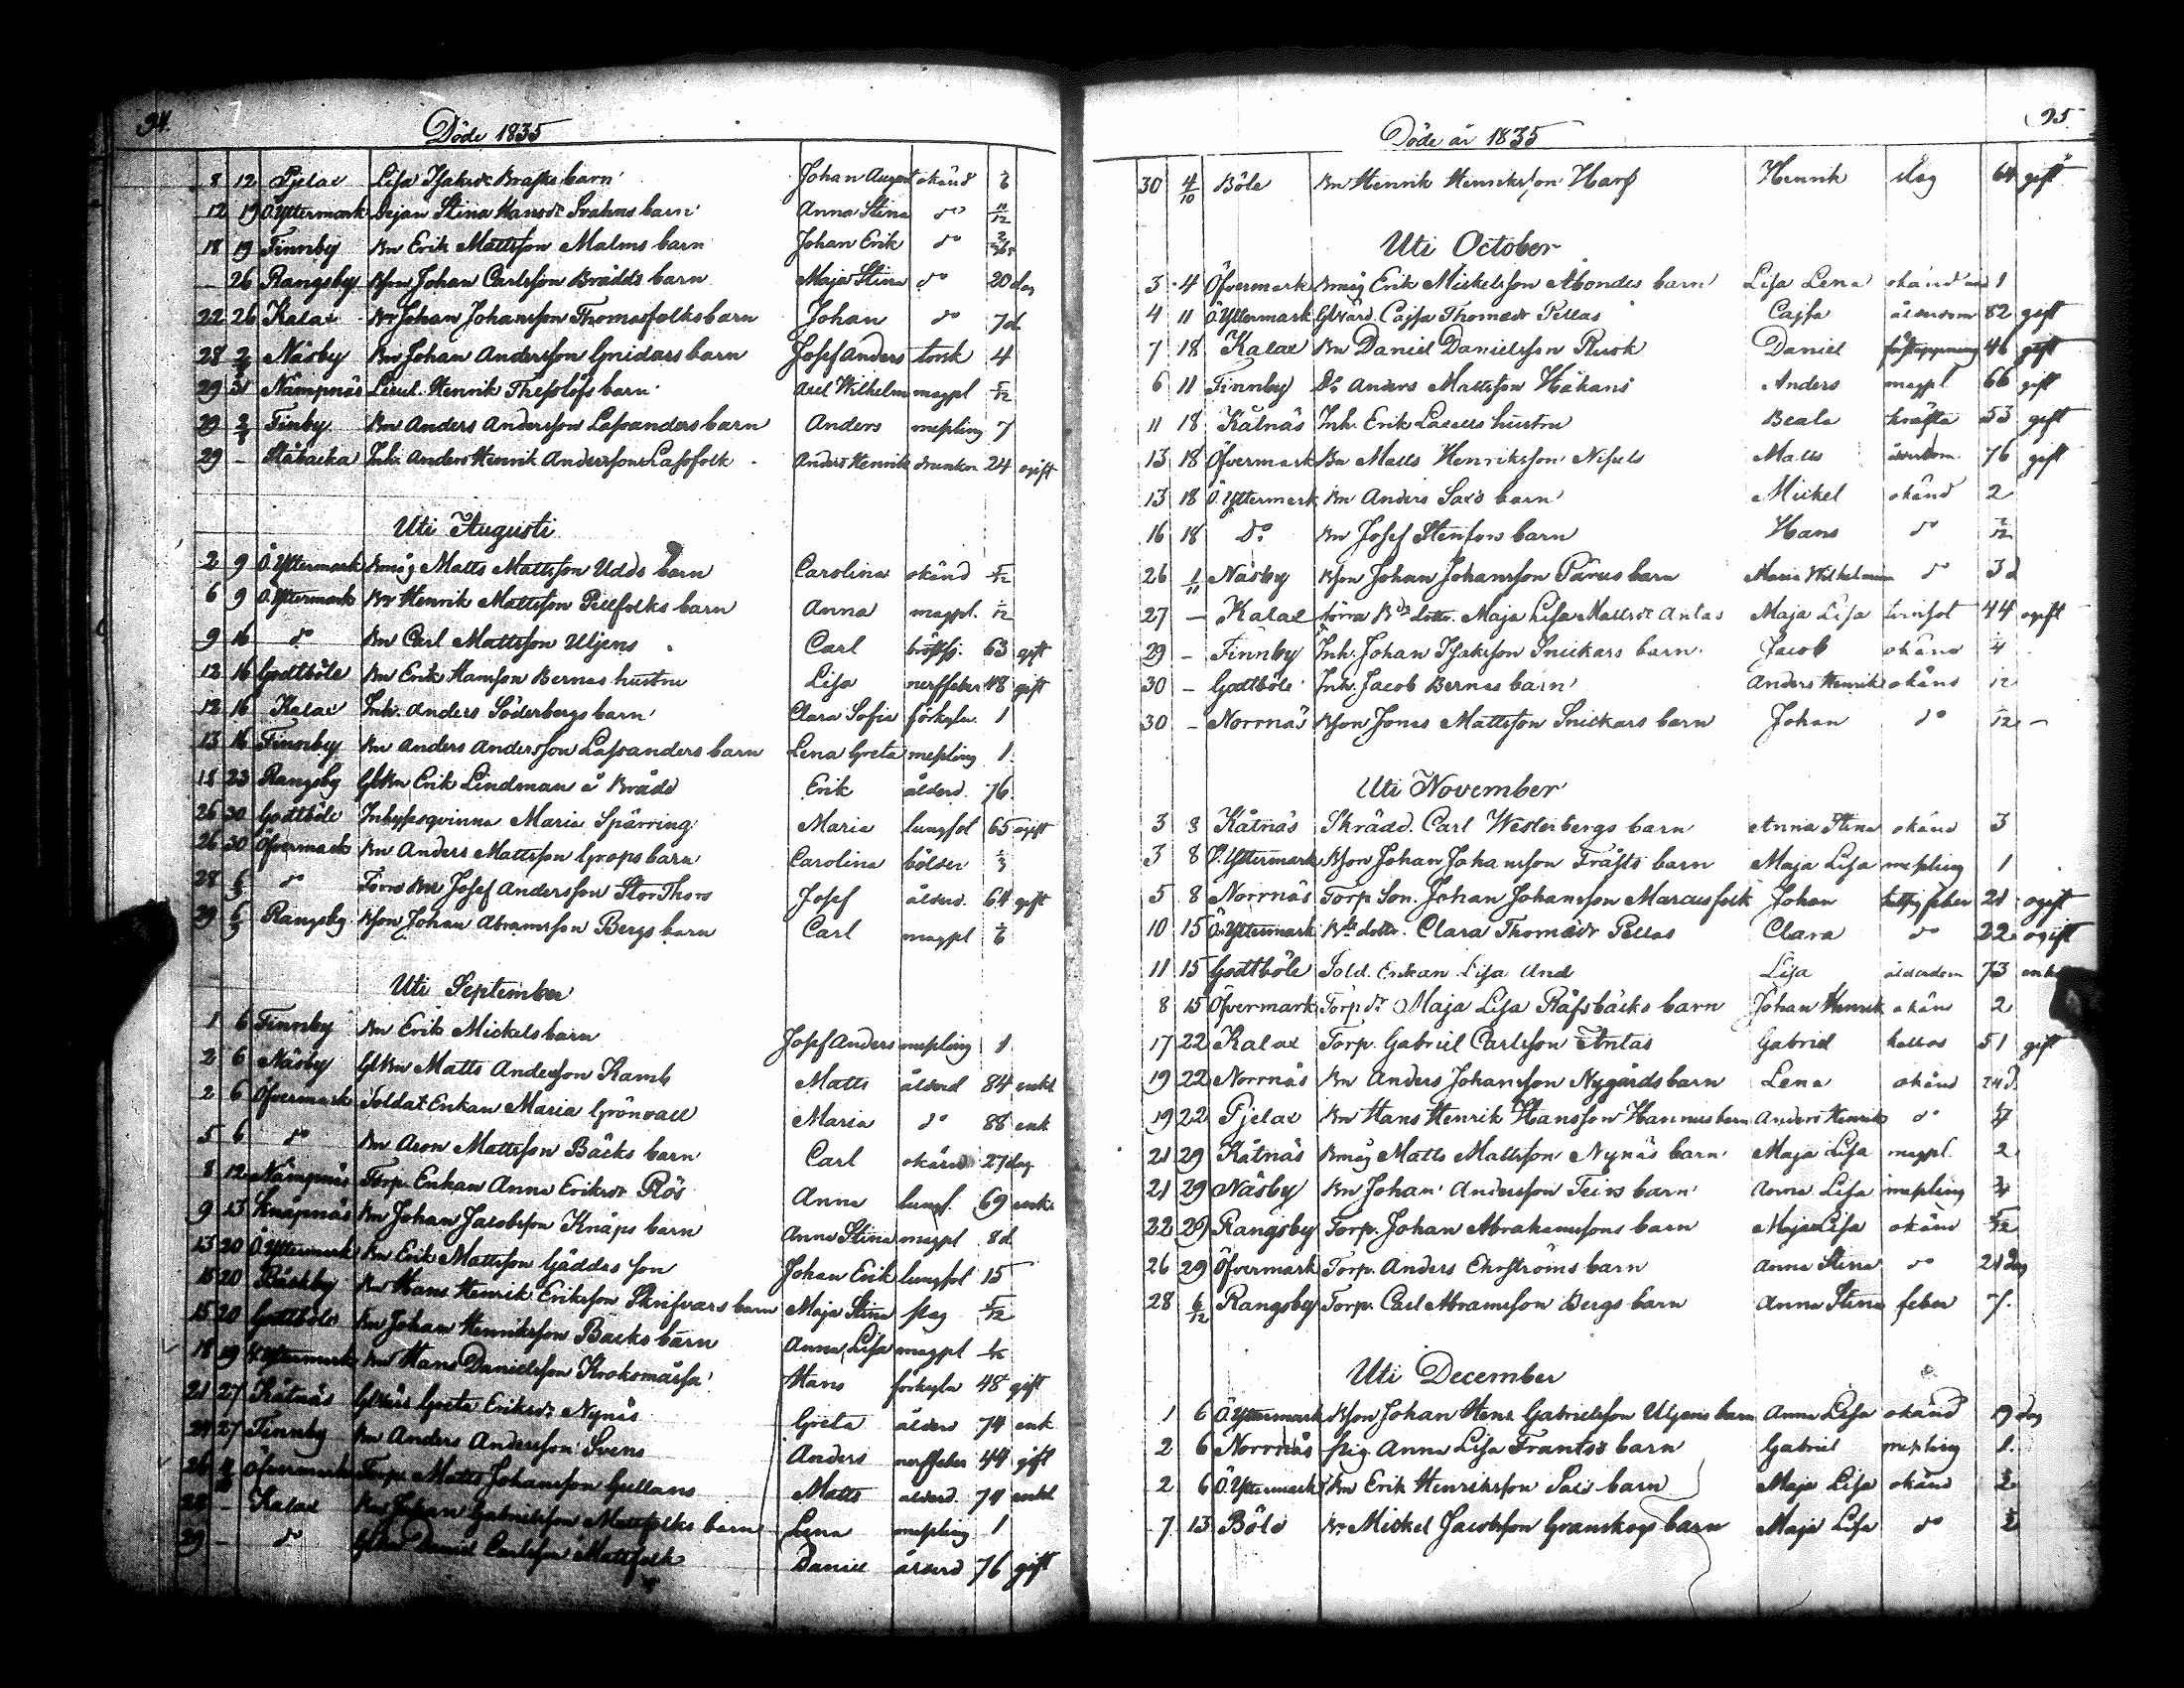 94.
Döde 1835
8 12 Pjelax Lisa Isaksdr Brasks barn Johan August okänd 1/6
12 19 Ö.Yttermark Pigan Stina Hansdr Svahns barn Anna Stina do 11/12
18 19 Finnby Bn Erik Mattsson Malms barn Johan Erik do
26 Rangsby Bson Johan Carlsson Brädds barn Maja Stina do 20 dag
22 26 Kalax Bn Johan Johansson Thomasfolks barn Johan do 7 d
28 2/8 Näsby Bn Johan Andersson Gnidars barn Josef Anders torsk 4
29 31 Nämpnäs Lieut. Henrik Theslöfs barn Axel Wilhelm magpl 5/12
29 2/8 Finby Bn Anders Andersson Lassanders barn Anders messling 7
29 – Ståbacka Inh. Anders Henrik Andersson Lassfolk Anders Henrik drunkn 24 ogift
Uti Augusti
2 9 Ö.Yttermark Bmåg Matts Mattsson Udds barn Carolina okänd 5/12
6 9 Ö.Yttermark Bn Henrik Mattsson Pellfolks barn Anna magpl. 1/12
9 16 do Bn Carl Mattsson Uljens Carl bröstsj. 63 gift
12 16 Godtböle Bn Erik Hansson Bernas hustru Lisa nerffeber 48 gift
12 16 Kalax Inh. Anders Söderbergs barn Clara Sofia förkyln. 1
13 16 Finnby Bn Anders Andersson Lassanders barn Lena Greta messling 1
18 23 Rangsby GlBn Erik Lindman å Brådd Erik ålderd. 76
26 30 Godtböle Inhyssqvinna Maria Spärring Maria lungsot 65 ogift
26 30 Öfvermark Bn Anders Mattsson Grops barn Carolina bölder 1/3
28 6/9 do Förra Bn Josef Andersson StorThors Josef ålderd. 64 gift
29 6/9 Rangsby Bson Johan Abramsson Bergs barn Carl magpl 1/6
Uti September
1 6 Finnby Bn Erik Mickels barn Josef Anders messling 1
2 6 Näsby GlBn Matts Andersson Kamb Matts ålderd 84 enkl
2 6 Öfvermark Soldat Enkan Maria Grönvall Maria do 88 enk
5 6 do Bn Aron Mattsson Bäcks barn Carl okänd 27 dag
8 12 Nämpnäs Torp. Enkan Anna Eriksdr Rös Anna lungs. 69 enk.
9 13 Knåpnäs Bn Johan Jacobsson Knåps barn Anna Stina magpl 8 d
13 20 Ö.Yttermark Bn Erik Mattsson Gäddas son Johan Erik lungsot 15
15 20 Bäckby Bn Hans Henrik Eriksson Skrifvars barn Maja Stina slag 5/12
15 20 Godtböle Bn Johan Henriksson Backs barn Anna Lisa magpl
18 19 Ö.Yttermark Bn Hans Danielsson Krokomässa Hans förkyln 48 gift
21 27 Kåtnäs Greta Eriksdr Nynäs Greta ålderd 74 enk
24 27 Finnby Bn Anders Andersson Svens Anders nerffeber 44 gift
26 Öfvermark Torp. Matts Johansson Gullans Matts ålderd. 74 enkl
28 – Kalax Bn Johan Gabrielsson Mattfolks barn Lena messling 1
29 – do GlBn Daniel Carlsson Mattfolk Daniel ålderd 76 gift
95.
Döde år 1835
30 4/10 Böle Bn Henrik Henriksson Harf Henrik slag 64 gift
Uti October
3 4 Öfvermark Bmåg Erik Mickelsson Åbondes barn Lisa Lena okänd 1
4 11 Ö.Yttermark Cajsa Thomasdr Pellas Cajsa ålderdom 82 gift
7 18 Kalax Bn Daniel Danielsson Rusk Daniel förstoppning 46 gift
6 11 Finnby Do Anders Mattsson Håkans Anders magpl. 66 gift
11 18 Kåtnäs Inh. Erik hustru Beata kräfta 53 gift
13 18 Öfvermark Bn Matts Henriksson Nissels Matts ålderdom. 76 gift
13 18 Ö.Yttermark Bn Anders Sax's barn Mickel okänd 2
16 18 Do Bn Josef Stenfors barn Hans do
26 1/11 Näsby Bson Johan Johansson Pärus barn Maria Wilhelmina do 3 d
27 – Kalax förra Bds dotter. Maja Lisa Mattsdr Antas Maja Lisa 44 ogift
29 – Finnby Inh. Johan Isaksson Snickars barn Jacob okänd
30 – Godtböle Inh. Jacob Bernas barn Anders Henrik okänd
30 – Norrnäs Bson Jonas Mattsson Snickars barn Johan do –
Uti November
3 8 Kåtnäs Skrädd. Carl Westerbergs barn Anna Stina okänd 3
3 8 Ö.Yttermark Bson Johan Johansson Träfts barn Maja Lisa messling 1
5 8 Norrnäs Torp. Son. Johan Johansson Marcusfolk Johan feber 21 ogift
10 15 Ö.Yttermark Bds dotter. Clara Thomasdr Pellas Clara do 22 ogift
11 15 Godtböle Sold. Enkan Lisa And Lisa ålderdom 73 enk
8 15 Öfvermark Torp dr Maja Lisa Råfsbäcks barn Johan Henrik okänd 2
17 22 Kalax Torp. Gabriel Carlsson Antas Gabriel 51 gift
19 22 Norrnäs Bn Anders Johansson Nygårds barn Lena okänd 24 d.
19 22 Pjelax Bn Hans Henrik Hansson Hannus barn Anders Henrik do
21 29 Kåtnäs Bmåg Matts Mattsson Nynäs barn Maja Lisa magpl. 2
21 29 Näsby Bn Johan Andersson Teirs barn Anna Lisa messling
22 29 Rangsby Torp. Johan Abrahamssons barn Maja Lisa okänd 5/12
26 29 Öfvermark Torp. Anders Ekströms barn Anna Stina do 21 dag
28 6/12 Rangsby Torp. Carl Abramsson Bergs barn Anna Stina feber 7.
Uti December
1 6 Ö.Yttermark Bson Johan Henr. Gabrielsson Uljens barn Anna Lisa okänd 19 dag
2 6 Norrnäs Pig. Anna Lisa Frants's barn Gabriel messling 1.
2 6 Ö.Yttermark Bn Erik Henriksson Sax's barn Maja Lisa okänd 1/2
7 13 Böle Bn Mickel Jacobsson Granskogs barn Maja Lisa do 1/2